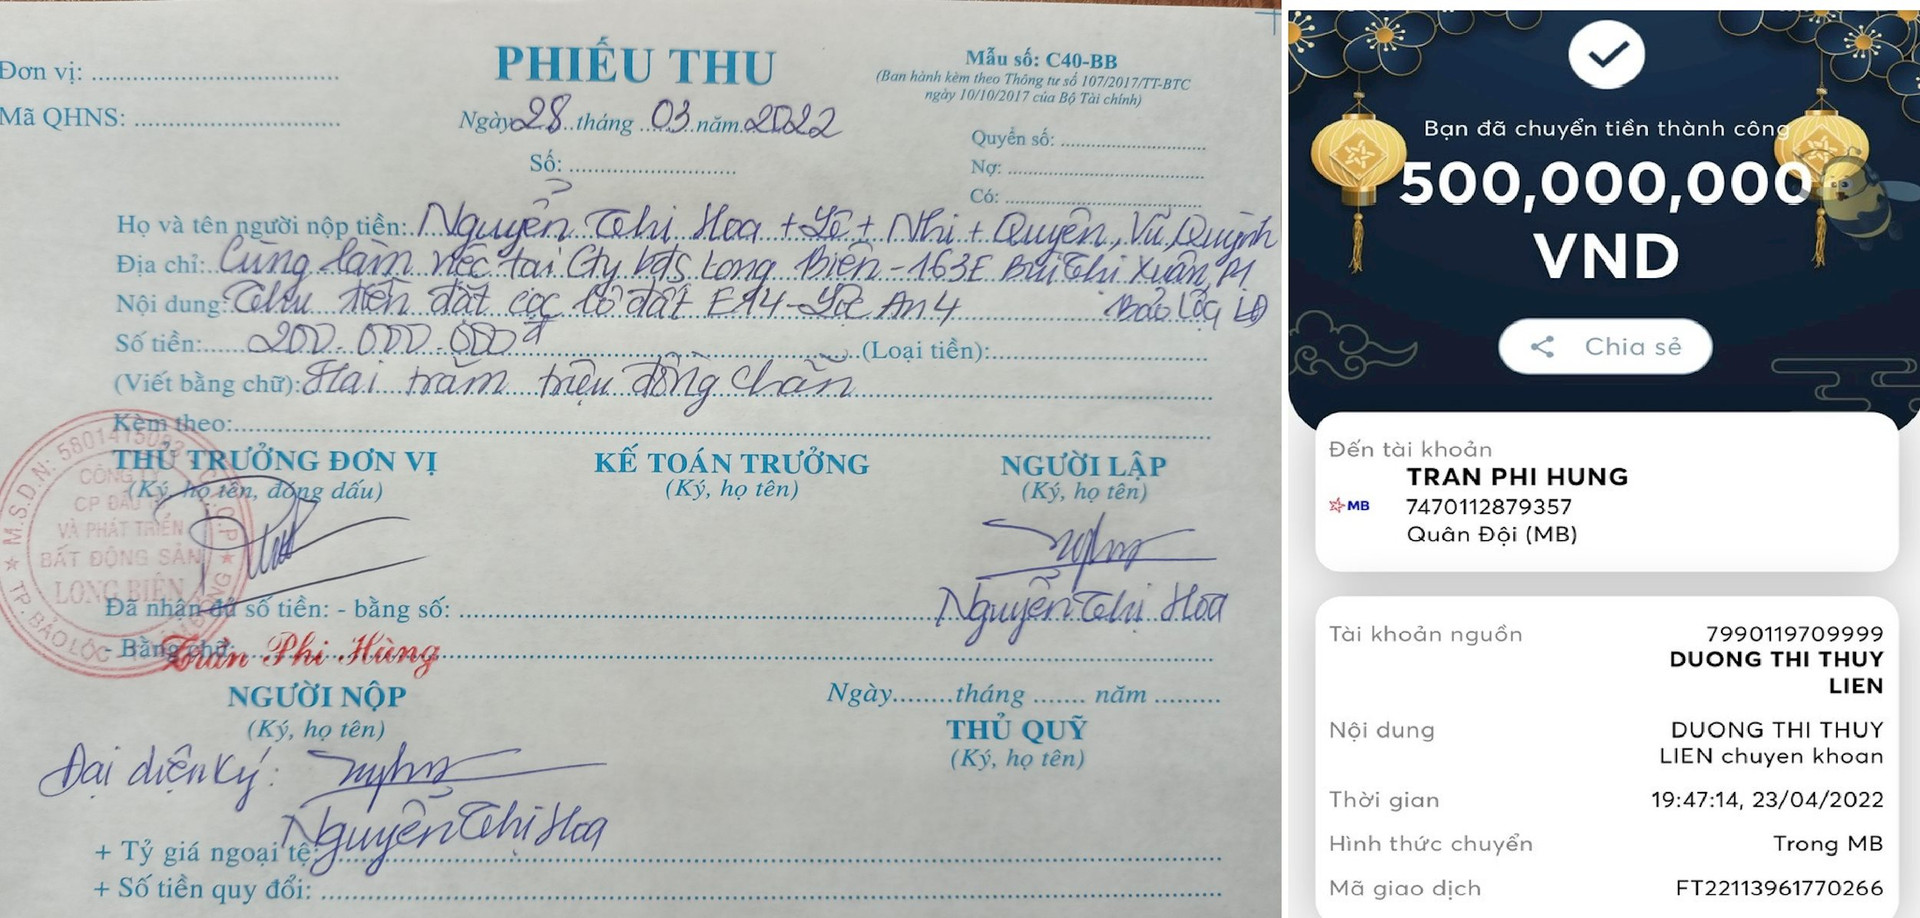 Đơn vị:
PHIẾU THU
Mẫu số: C40-BB
(Ban hành kèm theo Thông tư số 107/2017/TT-BTC
ngày 10/10/2017 của Bộ Tài chính)
Mã QHNS:
Ngày 28 tháng 03 năm 2022
Quyển số:
Số:
Nợ:
Có:
Họ và tên người nộp tiền: Nguyễn Thị Hoa + Yê + Nhi + Quyên, Vũ, Quỳnh
Địa chỉ: Cùng làm việc tại Cty bđs Long Biên - 163E Bùi Thị Xuân, P1
Bảo Lộc, LĐ
Nội dung: Thu tiền đặt cọc lô đất E14 - Lộc An 4
Số tiền: 200.000.000đ (Loại tiền):
(Viết bằng chữ): Hai trăm triệu đồng chẵn
Kèm theo:
THỦ TRƯỞNG ĐƠN VỊ
(Ký, họ tên, đóng dấu)
KẾ TOÁN TRƯỞNG
(Ký, họ tên)
NGƯỜI LẬP
(Ký, họ tên)
CÔNG TY
CP ĐẦU TƯ
VÀ PHÁT TRIỂN
BẤT ĐỘNG SẢN
LONG BIÊN
M.S.D.N: C.T.C.P
TP. BẢO LỘC
Nguyễn Thị Hoa
Đã nhận đủ số tiền: - bằng số:
- Bằng chữ:
Trần Phi Hùng
NGƯỜI NỘP
(Ký, họ tên)
Ngày tháng năm
THỦ QUỸ
(Ký, họ tên)
Đại diện ký:
Nguyễn Thị Hoa
+ Tỷ giá ngoại tệ:
+ Số tiền quy đổi:
Bạn đã chuyển tiền thành công
500,000,000
VND
Chia sẻ
Đến tài khoản
TRAN PHI HUNG
MB
7470112879357
Quân Đội (MB)
Tài khoản nguồn
7990119709999
DUONG THI THUY
LIEN
Nội dung
DUONG THI THUY
LIEN chuyen khoan
Thời gian
19:47:14, 23/04/2022
Hình thức chuyển
Trong MB
Mã giao dịch
FT22113961770266